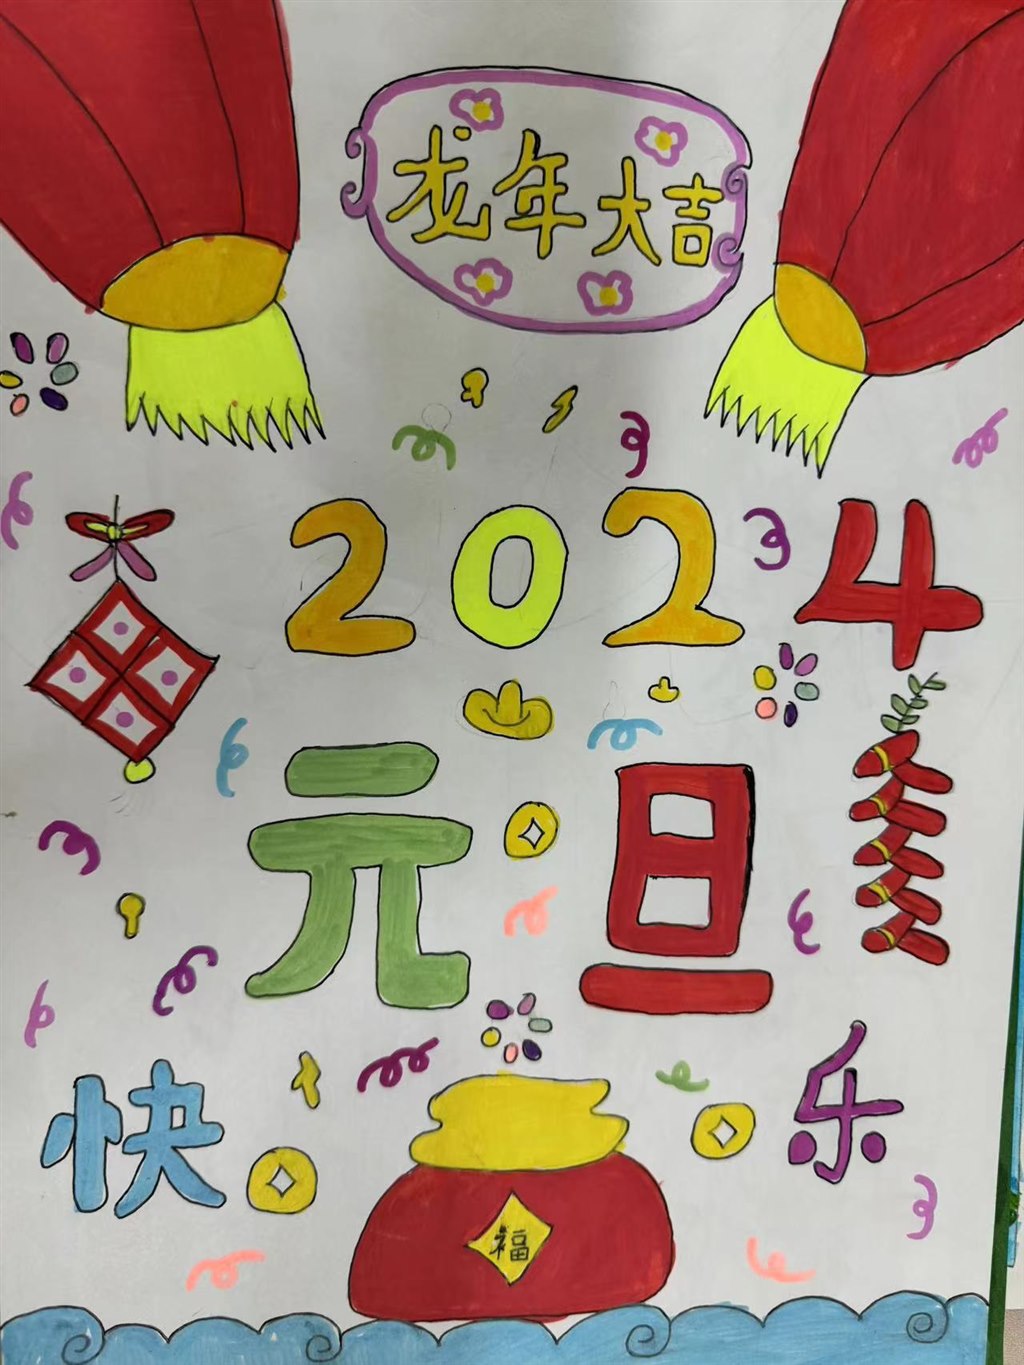 龙年大吉
2024
元旦
快乐
福